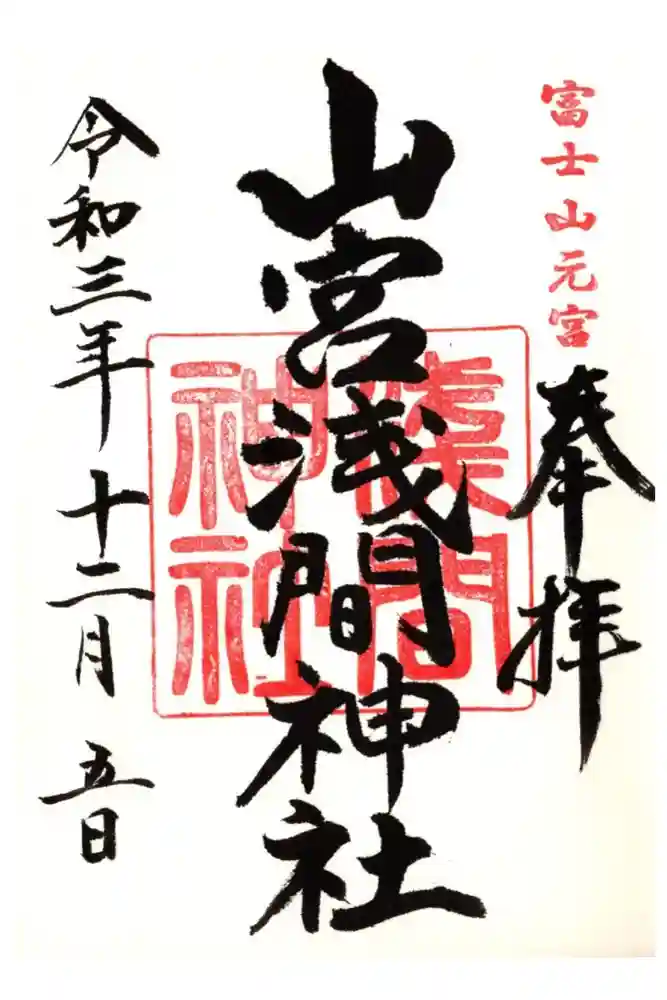 富士山元宮
奉拝
山宮浅間神社
浅間神社
令和三年十二月五日